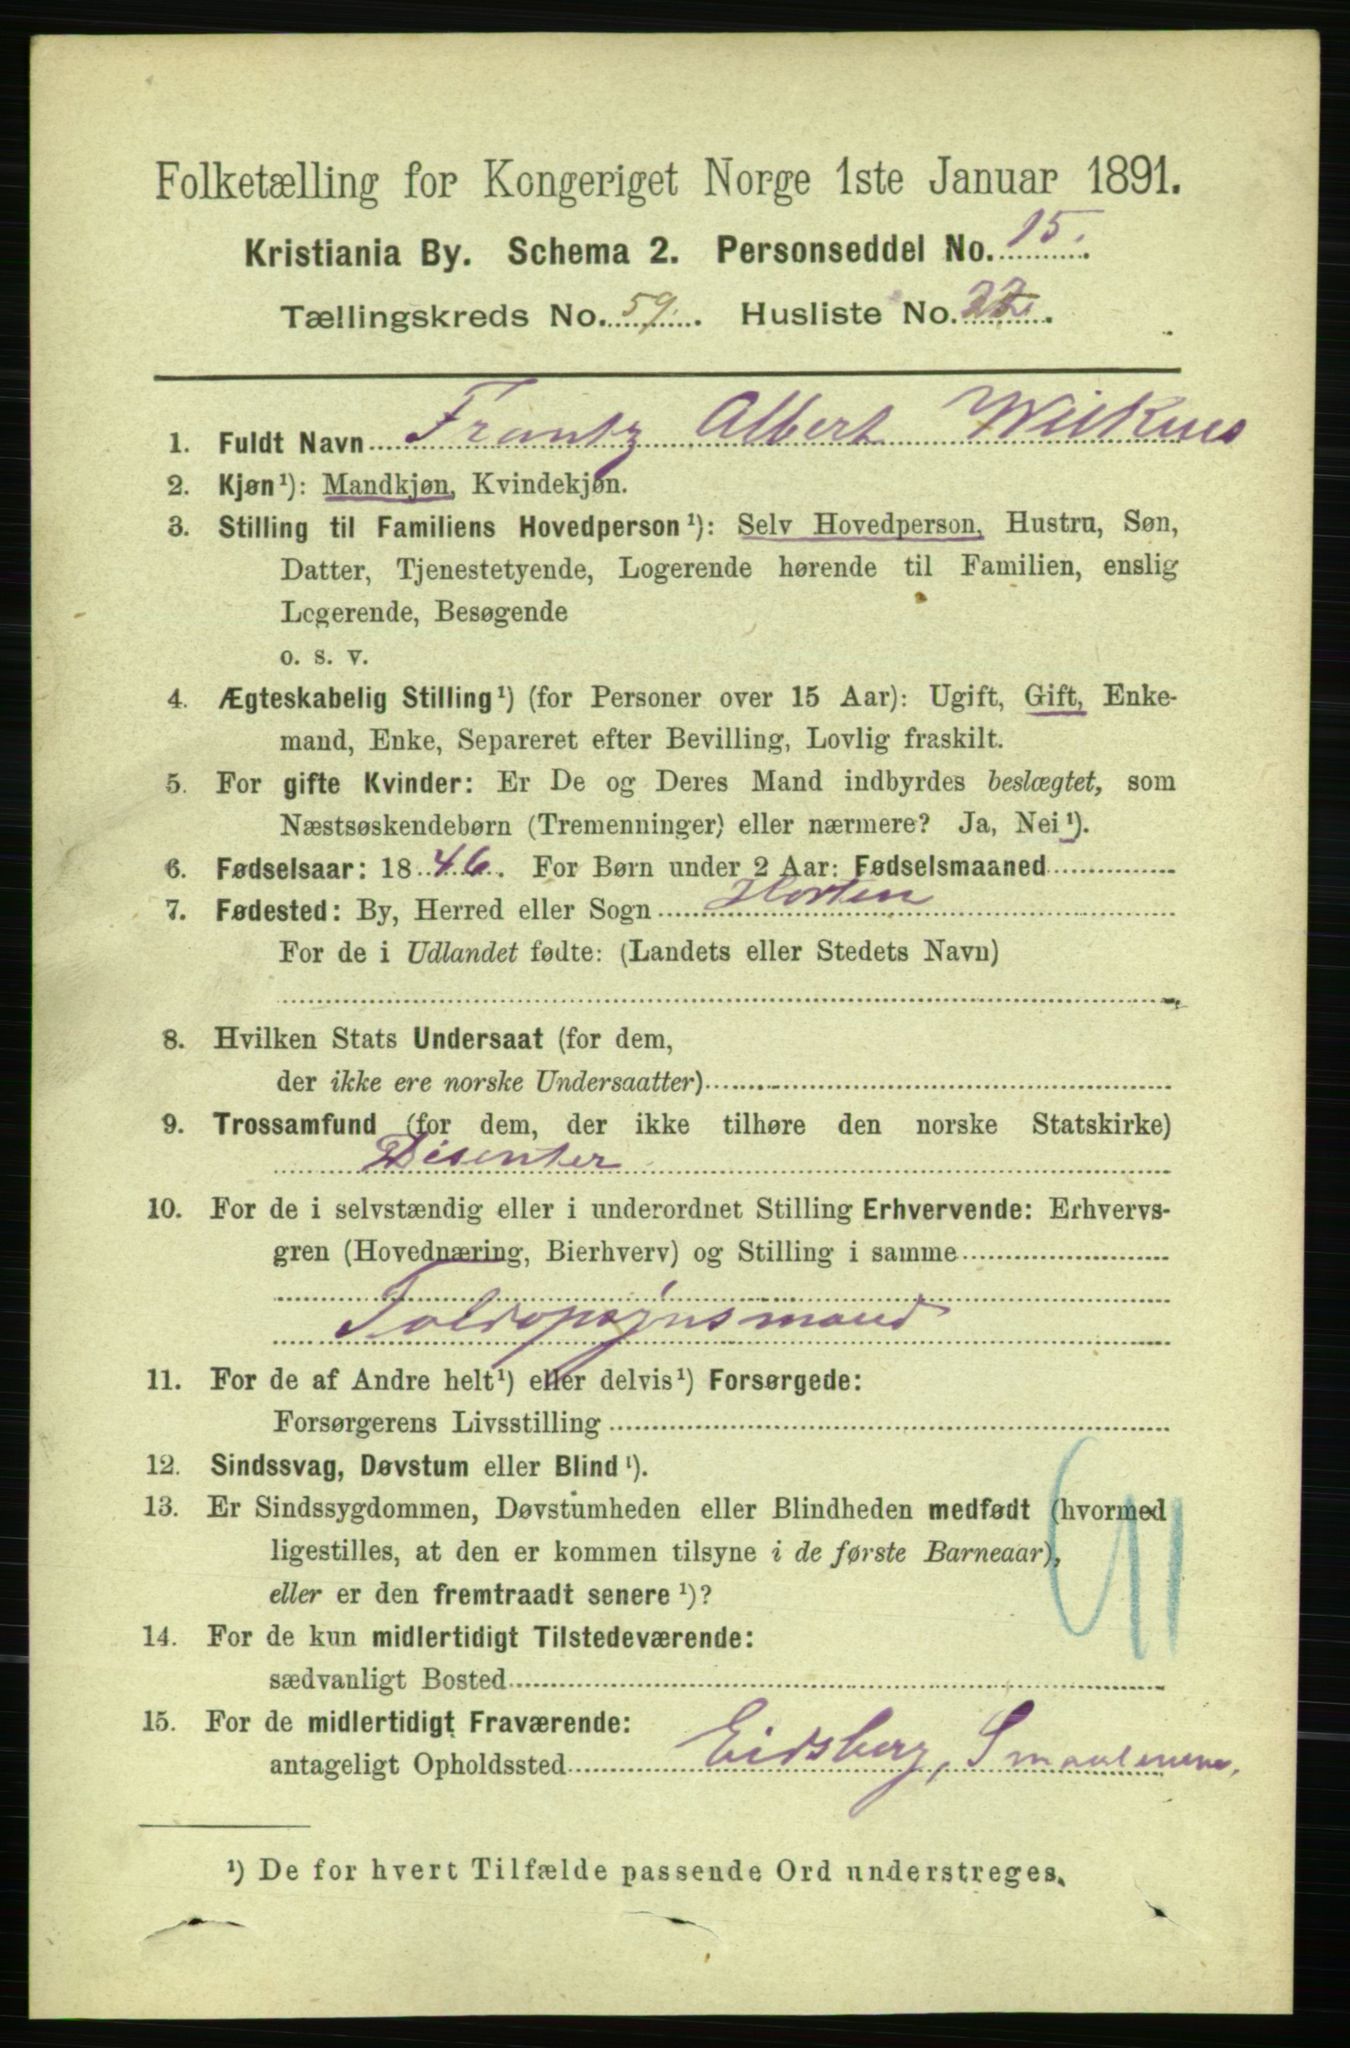 Folketælling for Kongeriget Norge 1ste Januar 1891.
Kristiania By. Schema 2. Personseddel No. 15.
Tællingskreds No. 59. Husliste No.
1. Fuldt Navn Frantz Albert
2. Kjøn¹): Mandkjøn, Kvindekjøn.
3. Stilling til Familiens Hovedperson¹): Selv Hovedperson, Hustru, Søn,
Datter, Tjenestetyende, Logerende hørende til Familien, enslig
Logerende, Besøgende
o. s. v.
4. Ægteskabelig Stilling¹) (for Personer over 15 Aar): Ugift, Gift, Enke-
mand, Enke, Separeret efter Bevilling, Lovlig fraskilt.
5. For gifte Kvinder: Er De og Deres Mand indbyrdes beslægtet, som
Næstsøskendebørn (Tremenninger) eller nærmere? Ja, Nei¹).
6. Fødselsaar: 1846. For Børn under 2 Aar: Fødselsmaaned
7. Fødested: By, Herred eller Sogn Horten
For de i Udlandet fødte: (Landets eller Stedets Navn)
8. Hvilken Stats Undersaat (for dem,
der ikke ere norske Undersaatter)
9. Trossamfund (for dem, der ikke tilhøre den norske Statskirke)
Disenter
10. For de i selvstændig eller i underordnet Stilling Erhvervende: Erhvervs-
gren (Hovednæring, Bierhverv) og Stilling i samme
Toldopsynsmand
11. For de af Andre helt¹) eller delvis¹) Forsørgede:
Forsørgerens Livsstilling
12. Sindssvag, Døvstum eller Blind¹).
13. Er Sindssygdommen, Døvstumheden eller Blindheden medfødt (hvormed
ligestilles, at den er kommen tilsyne i de første Barneaar),
eller er den fremtraadt senere¹)?
14. For de kun midlertidigt Tilstedeværende:
sædvanligt Bosted
15. For de midlertidigt Fraværende:
antageligt Opholdssted Eidsberg, Smaalenene.
¹) De for hvert Tilfælde passende Ord understreges.